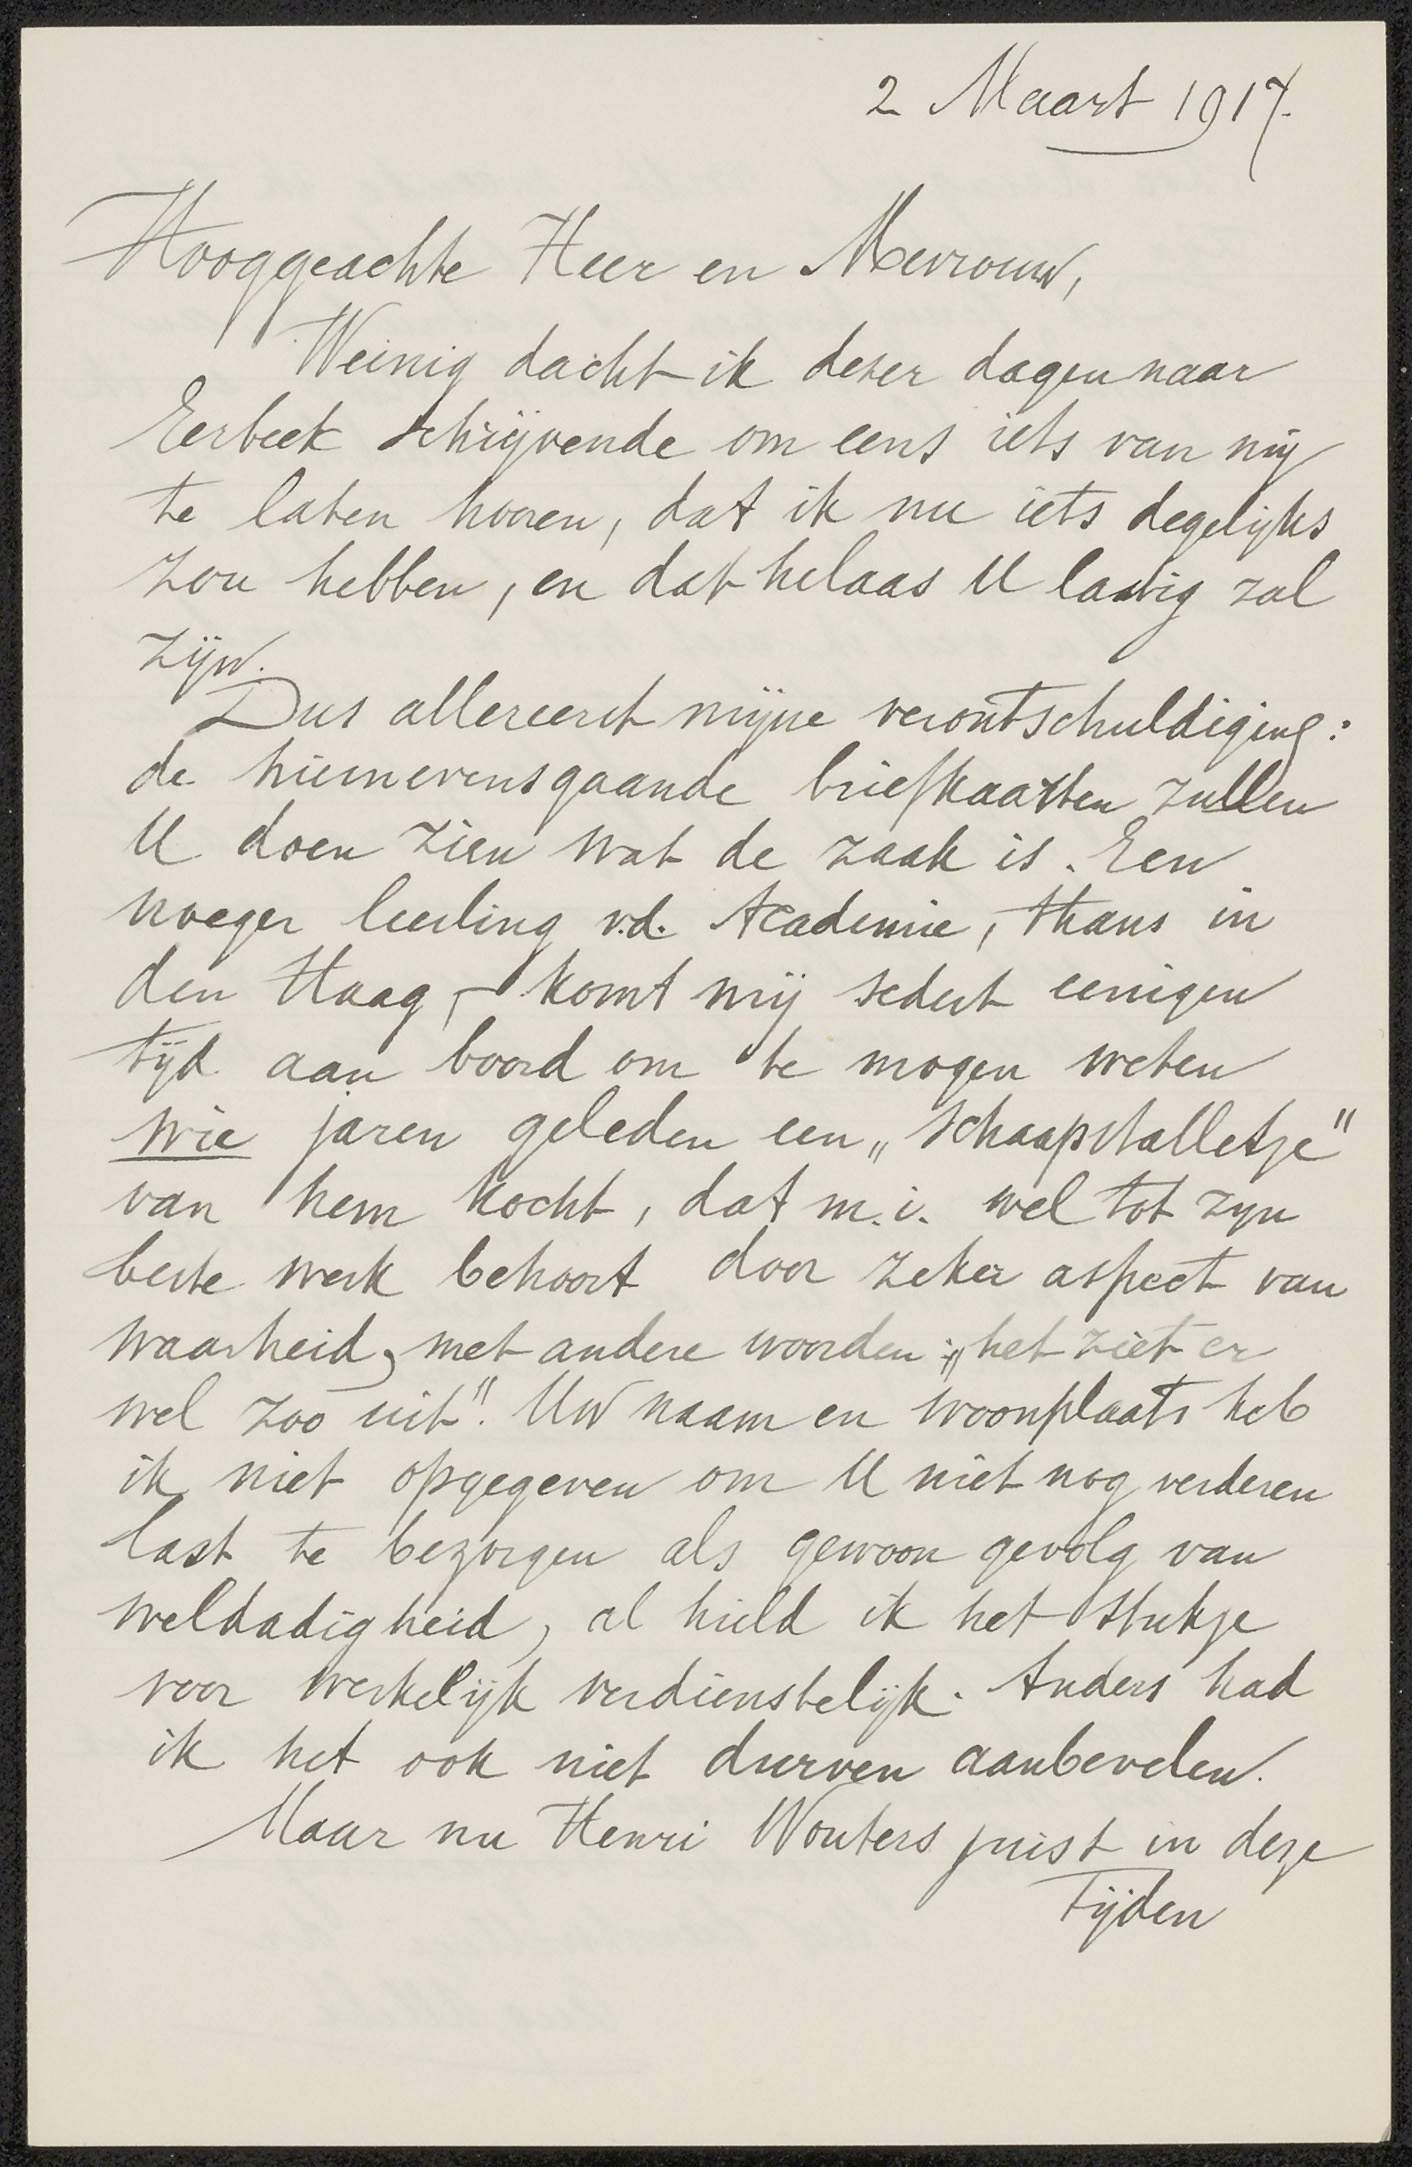 2 Maart 1917.
Hooggeachte Heer en Mevrouw,
Weinig dacht ik dezer dagen naar
Eerbeek schrijvende om eens iets van mij
te laten hooren, dat ik nu iets degelijks
zou hebben, en dat helaas U lastig zal
zijn.
Dus allereerst mijne verontschuldiging:
de hiernevensgaande briefkaarten zullen
U doen zien wat de zaak is. Een
vroeger leerling v.d. Academie, thans in
den Haag, - komt mij sedert eenigen
tijd aan boord om te mogen weten
wie jaren geleden een „schaapstalletje"
van hem kocht, dat m.i. wel tot zyn
beste werk behoort door zeker aspect van
waarheid, met andere woorden: „het ziet er
wel zoo uit". Uw naam en woonplaats heb
ik niet opgegeven om U niet nog verderen
last te bezorgen als gewoon gevolg van
weldadigheid, al hield ik het stukje
voor werkelijk verdienstelijk. Anders had
ik het ook niet durven aanbevelen.
Maar nu Henri Wouters juist in deze
tijden